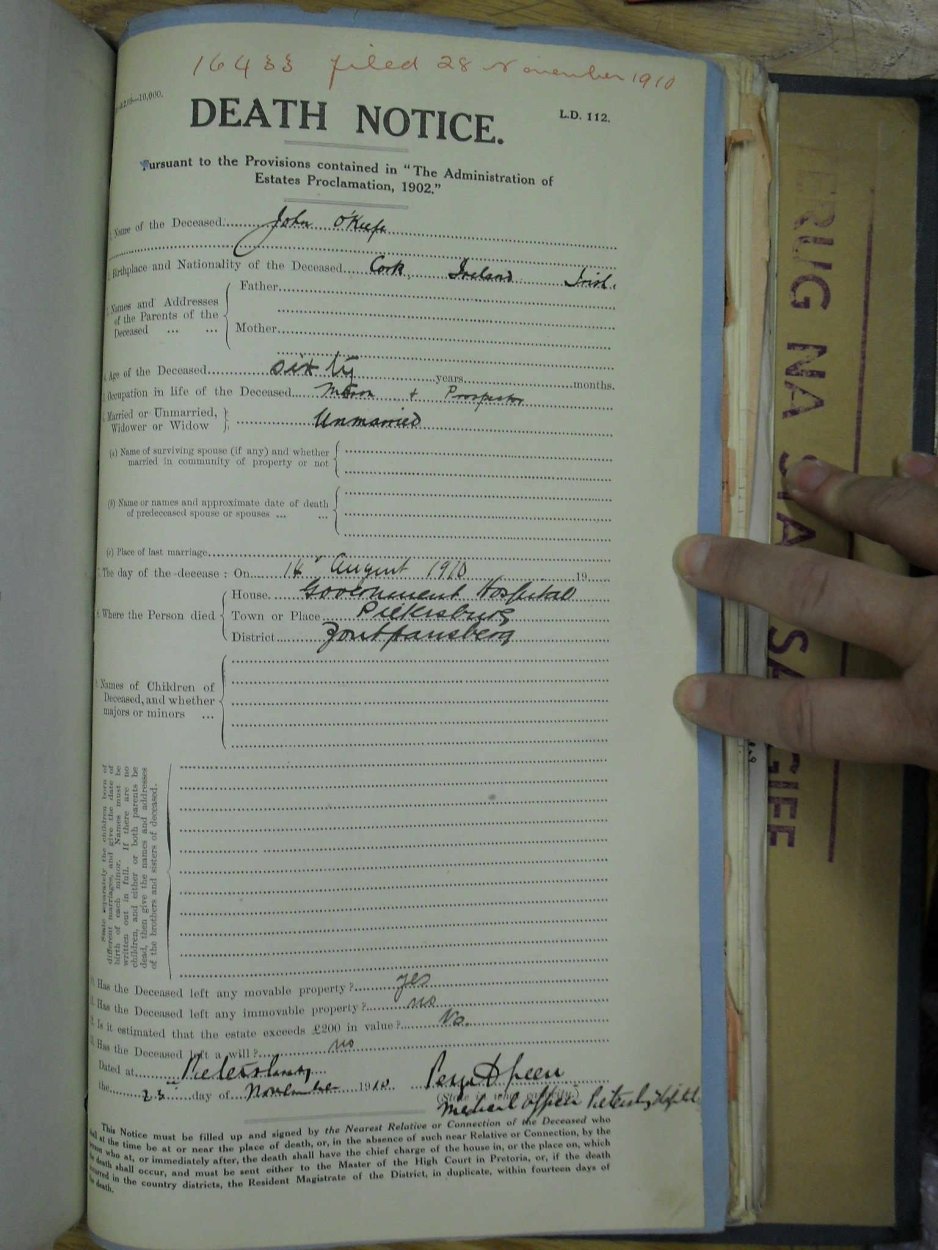 16433 filed 28 November 1910
DEATH NOTICE.
L.D. 112.
Pursuant to the Provisions contained in "The Administration of
Estates Proclamation, 1902."
Name of the Deceased John O'Keefe
Birthplace and Nationality of the Deceased Cork Ireland Irish.
Names and Addresses of the Parents of the Deceased ... ...
Father
Mother
Age of the Deceased sixty years months.
Occupation in life of the Deceased & Prospector
Married or Unmarried, Widower or Widow Unmarried
(a) Name of surviving spouse (if any) and whether
married in community of property or not
(b) Name or names and approximate date of death
of predeceased spouse or spouses ... ...
(c) Place of last marriage
The day of the decease : On 14 August 1910 19
Where the Person died
House. Government Hospital
Town or Place Pietersburg
District Zoutpansberg
Names of Children of
Deceased, and whether
majors or minors ...
State separately the children born of
different marriages, and give the date of
birth of each minor. Names must be
written out in full. If there are no
children, and either or both parents be
dead, then give the names and addresses
of the brothers and sisters of deceased.
Has the Deceased left any movable property? yes
Has the Deceased left any immovable property? no
Is it estimated that the estate exceeds £200 in value? No.
Has the Deceased left a will? no
Dated at Pietersburg
the 23 day of November 1910
Medical Officer
This Notice must be filled up and signed by the Nearest Relative or Connection of the Deceased who
at the time be at or near the place of death, or, in the absence of such near Relative or Connection, by the
who at, or immediately after, the death shall have the chief charge of the house in, or the place on, which
death shall occur, and must be sent either to the Master of the High Court in Pretoria, or, if the death
in the country districts, the Resident Magistrate of the District, in duplicate, within fourteen days of
death.
TERUG NA